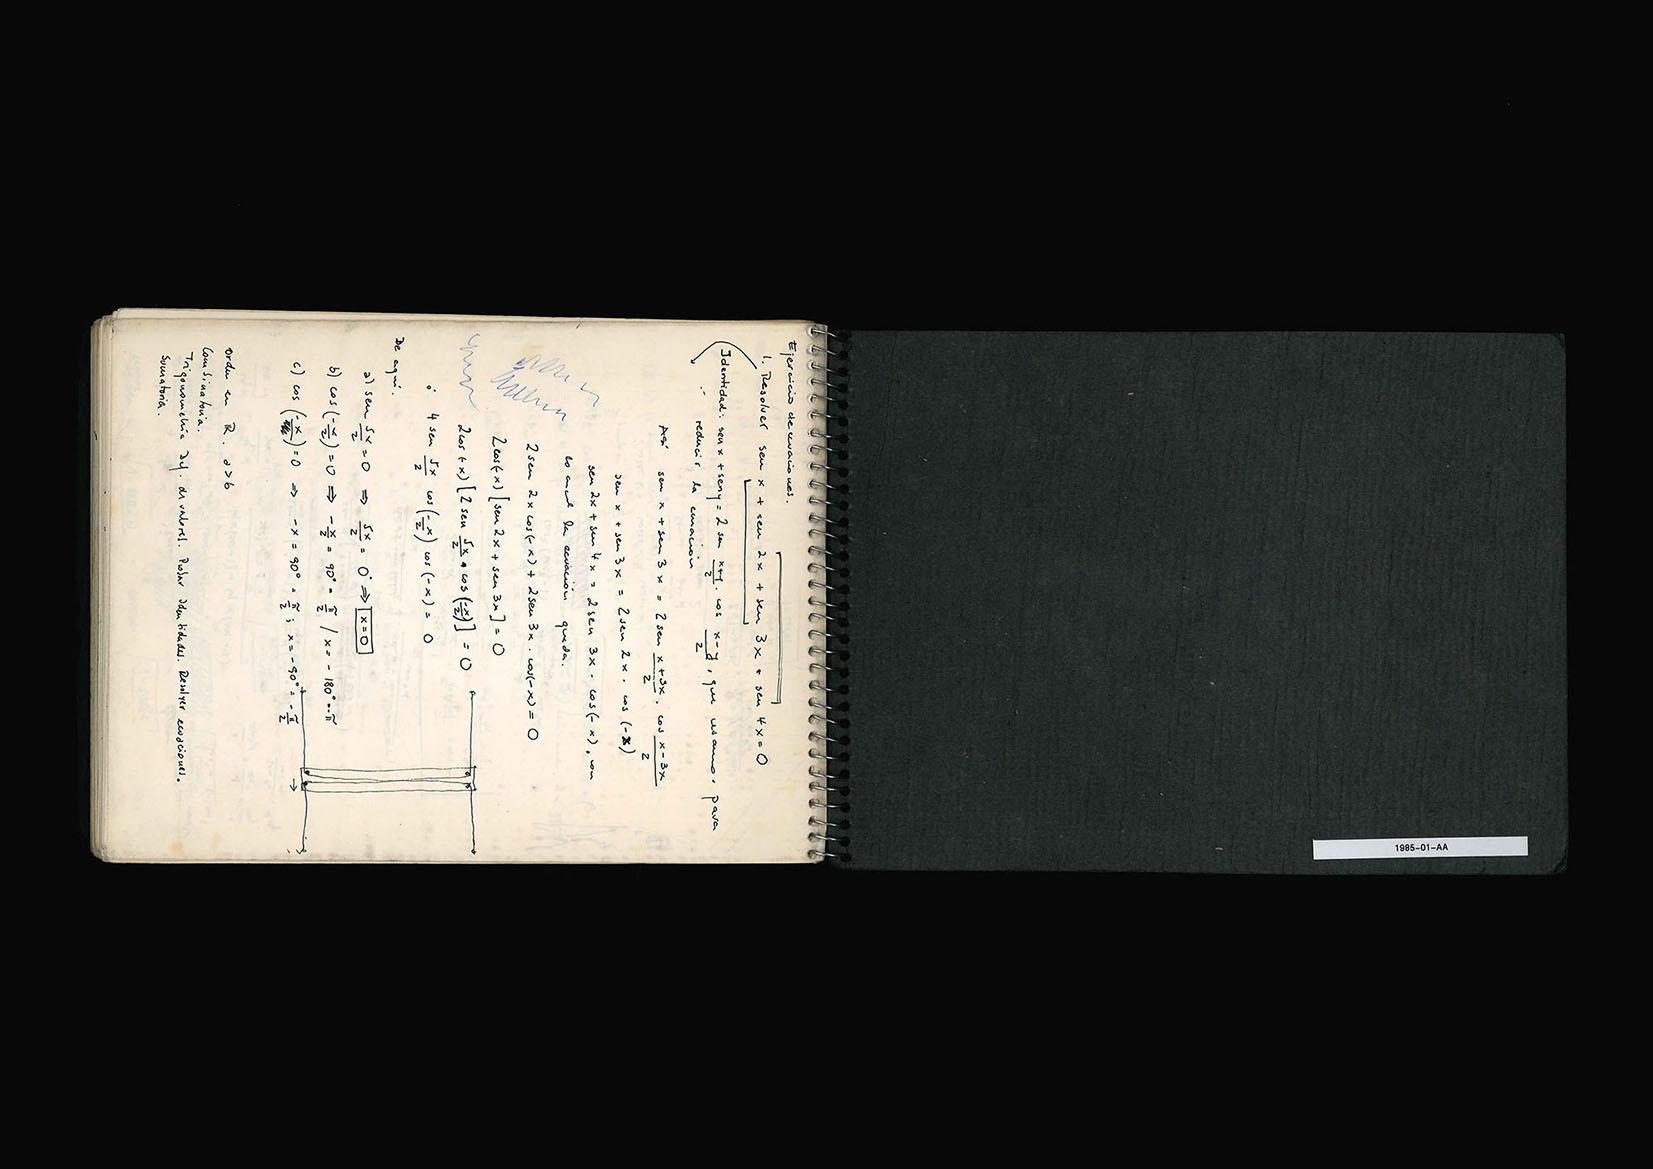 Ejercicio de ecuaciones.
1. Resolver sen x + sen 2x + sen 3x + sen 4x = 0
Identidad: sen x + sen y = 2 sen (x+y)/2 · cos (x-y)/2, que usamos para
∴ reducir la ecuación
Así sen x + sen 3x = 2 sen (x+3x)/2 · cos (x-3x)/2
sen x + sen 3x = 2 sen 2x · cos (-x)
sen 2x + sen 4x = 2 sen 3x · cos(-x), con
lo cual la ecuación queda.
2 sen 2x cos(-x) + 2 sen 3x · cos(-x) = 0
2 cos(-x) [sen 2x + sen 3x] = 0
2 cos(-x) [2 sen 5x/2 · cos (-x/2)] = 0
ó 4 sen 5x/2 cos(-x/2) cos(-x) = 0
De aquí.
a) sen 5x/2 = 0 ⇒ 5x/2 = 0° ⇒ x=0
b) cos(-x/2) = 0 ⇒ -x/2 = 90° = π/2 / x = -180° = -π
c) cos (-x) = 0 ⇒ -x = 90° = π/2; x = -90° = -π/2
orden en R. a>b
Combinatoria.
Trigonometría Def. di valores. Probar identidades. Resolver ecuaciones.
Sumatoria.
1985-01-AA